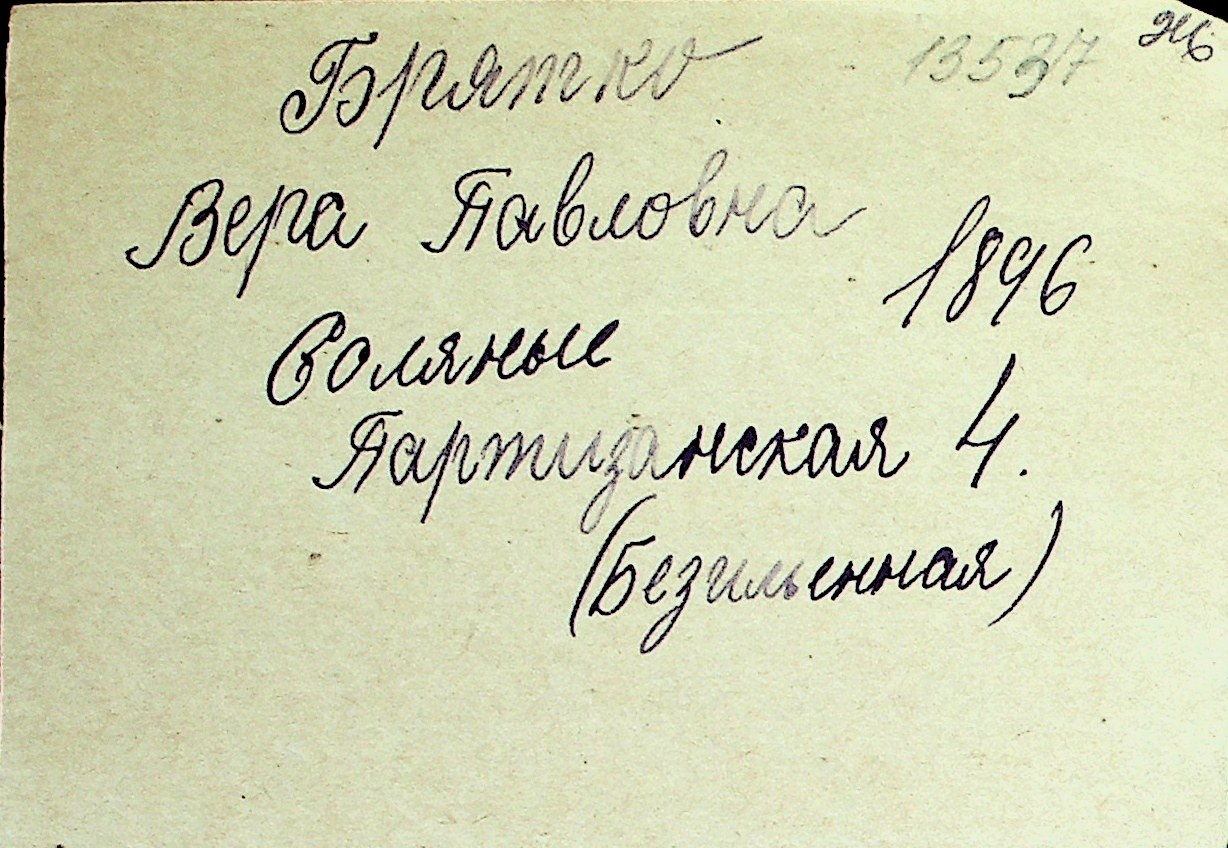 Брятко 13537
Вера Павловна
1896
Соляные
Партизанская 4.
(Безименная)